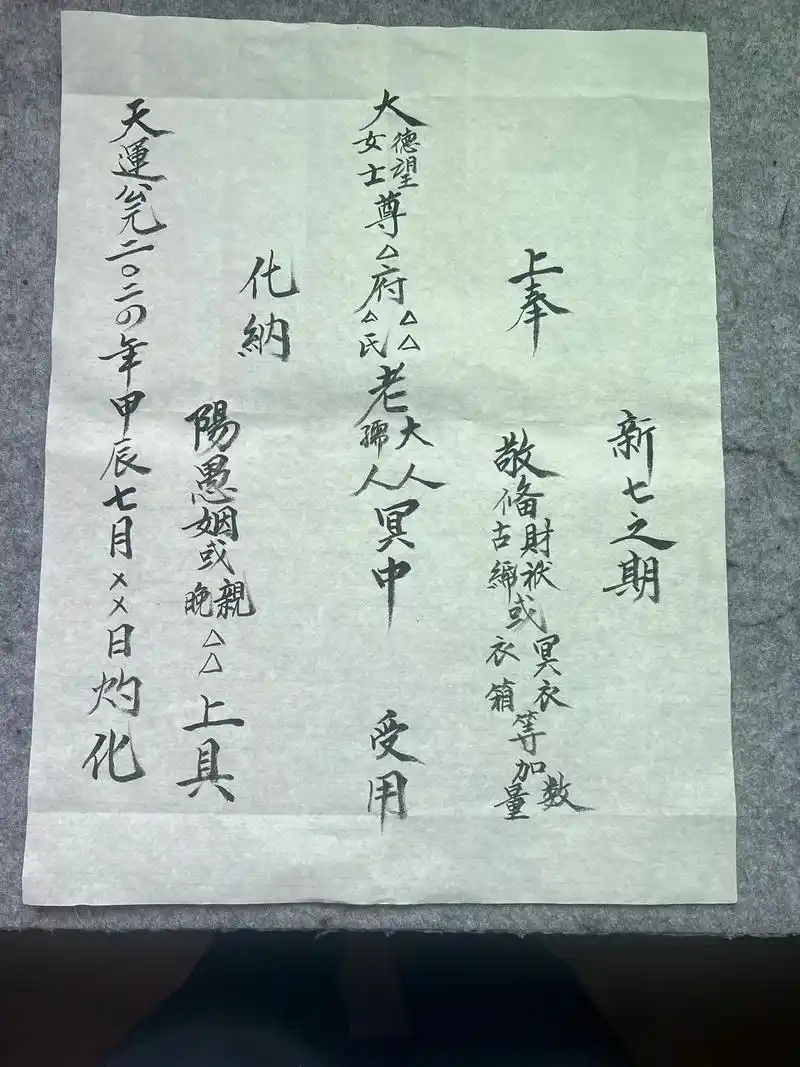 新七之期
上奉
敬俻財袱古緺或冥衣衣箱等加数量
大德望女士尊△府△△△氏老大人孺人冥中 受用
化納
陽愚姻或親晚△△上具
天運公元二〇二四年甲辰七月××日灼化